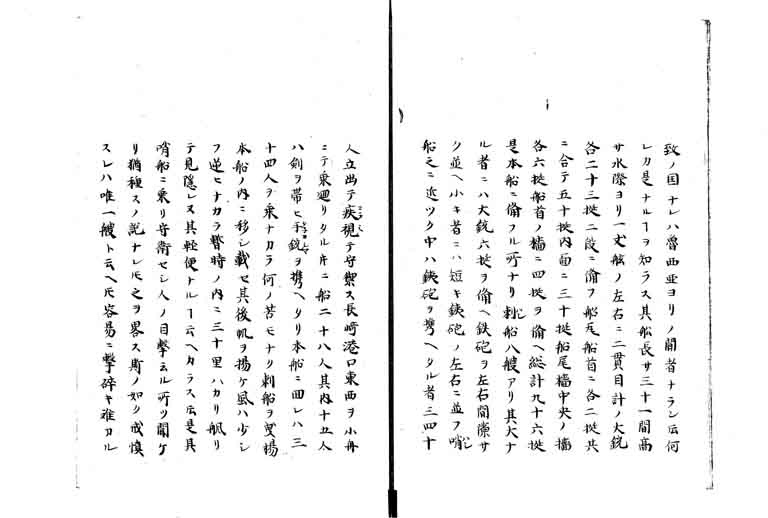 致ノ国ナレハ魯西亜ヨリノ間者ナラン𪜈何
レカ是ナルヿヲ知ラス其船長サ三十一間高
サ水際ヨリ一丈舷ノ左右ニ二貫目計ノ大銃
各二十三挺二段ニ備フ船尾船首ニ各二挺共
ニ合テ五十挺内面ニ三十挺船尾檣中央ノ檣
各六挺船首ノ檣ニ四挺ヲ備ヘ総計九十六挺
是本船ニ備フル所ナリ刺船八艘アリ其大ナ
ル者ニハ大銃六挺ヲ備ヘ鉄砲ヲ左右間隙サ
ク並ヘ小キ者ニハ短キ鉄砲ノ左右ニ並フ哨
船之ニ近ツク中ハ鉄砲ヲ携ヘタル者三四十
人立出テ疾視テ守禦ス長崎港口東西ヲ小舟
ニテ乗廻リタル牛ニ船二十八人其内十五人
ハ剣ヲ帯ヒ手銃ヲ携ヘタリ本船ニ回レハ三
十四人ヲ乗ナカラ何ノ苦モナク刺船ヲ曳揚
本船ノ内ニ移シ載セ其後帆ヲ揚ケ風ハ少シ
フ逆ヒナカラ暫時ノ内ニ三十里ハカリ帆リ
テ見隠レヌ其軽便トルヿ云ヘカラス𪜈是其
哨船ニ乗リ守衛セシ人ノ目撃云ル所ヲ聞ケ
リ猶種スノ記ナレ𪜈之ヲ畧ス斯ノ如ク戒慎
スレハ唯一艘ト云ヘ𪜈容易ニ撃碎キ難カル